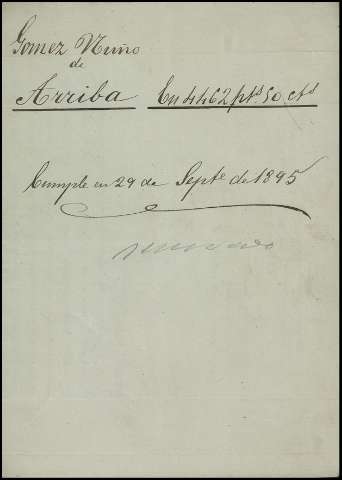 Gomez Nuño
de
Arriba En 4462 pts. 50 cts
Cumple en 29 de Septe. de 1895